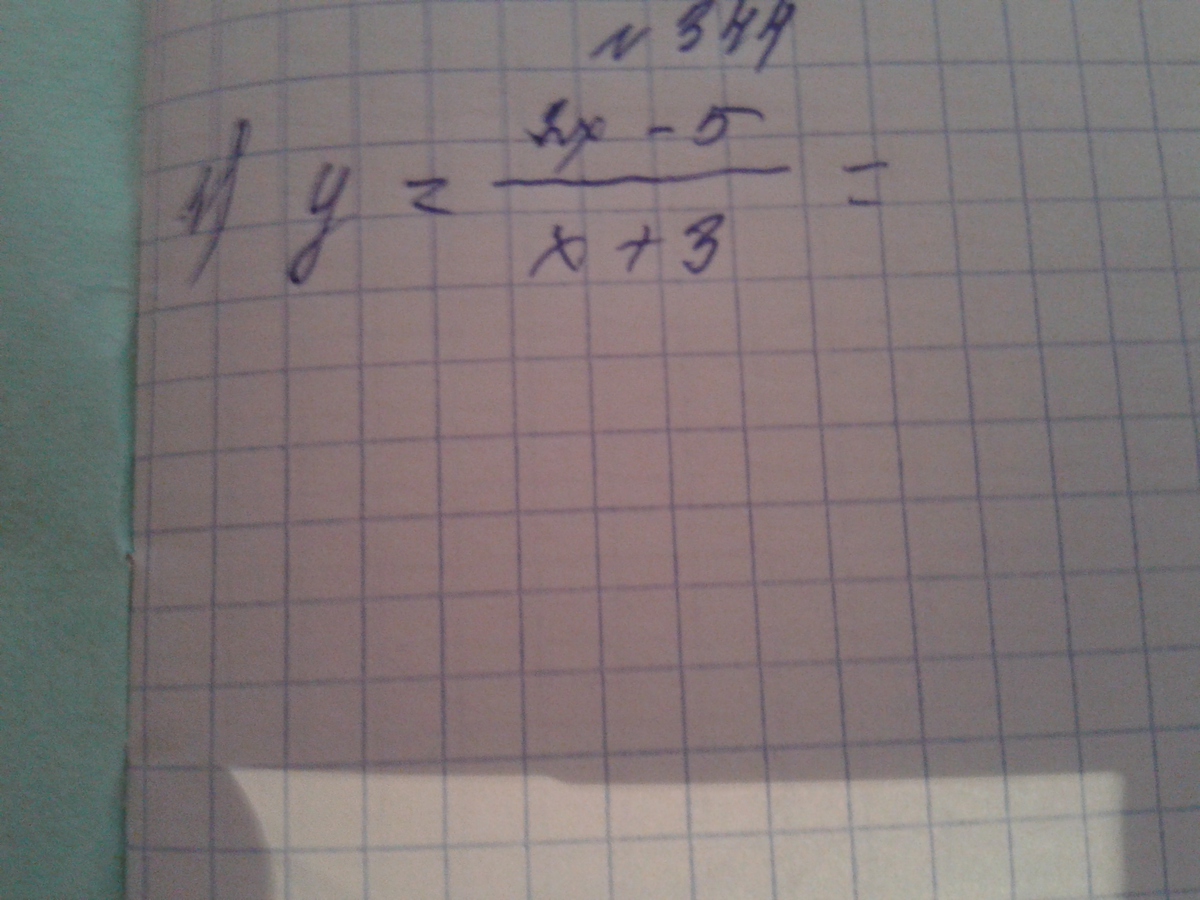 № 344
1) y = (2x - 5)/(x + 3) =